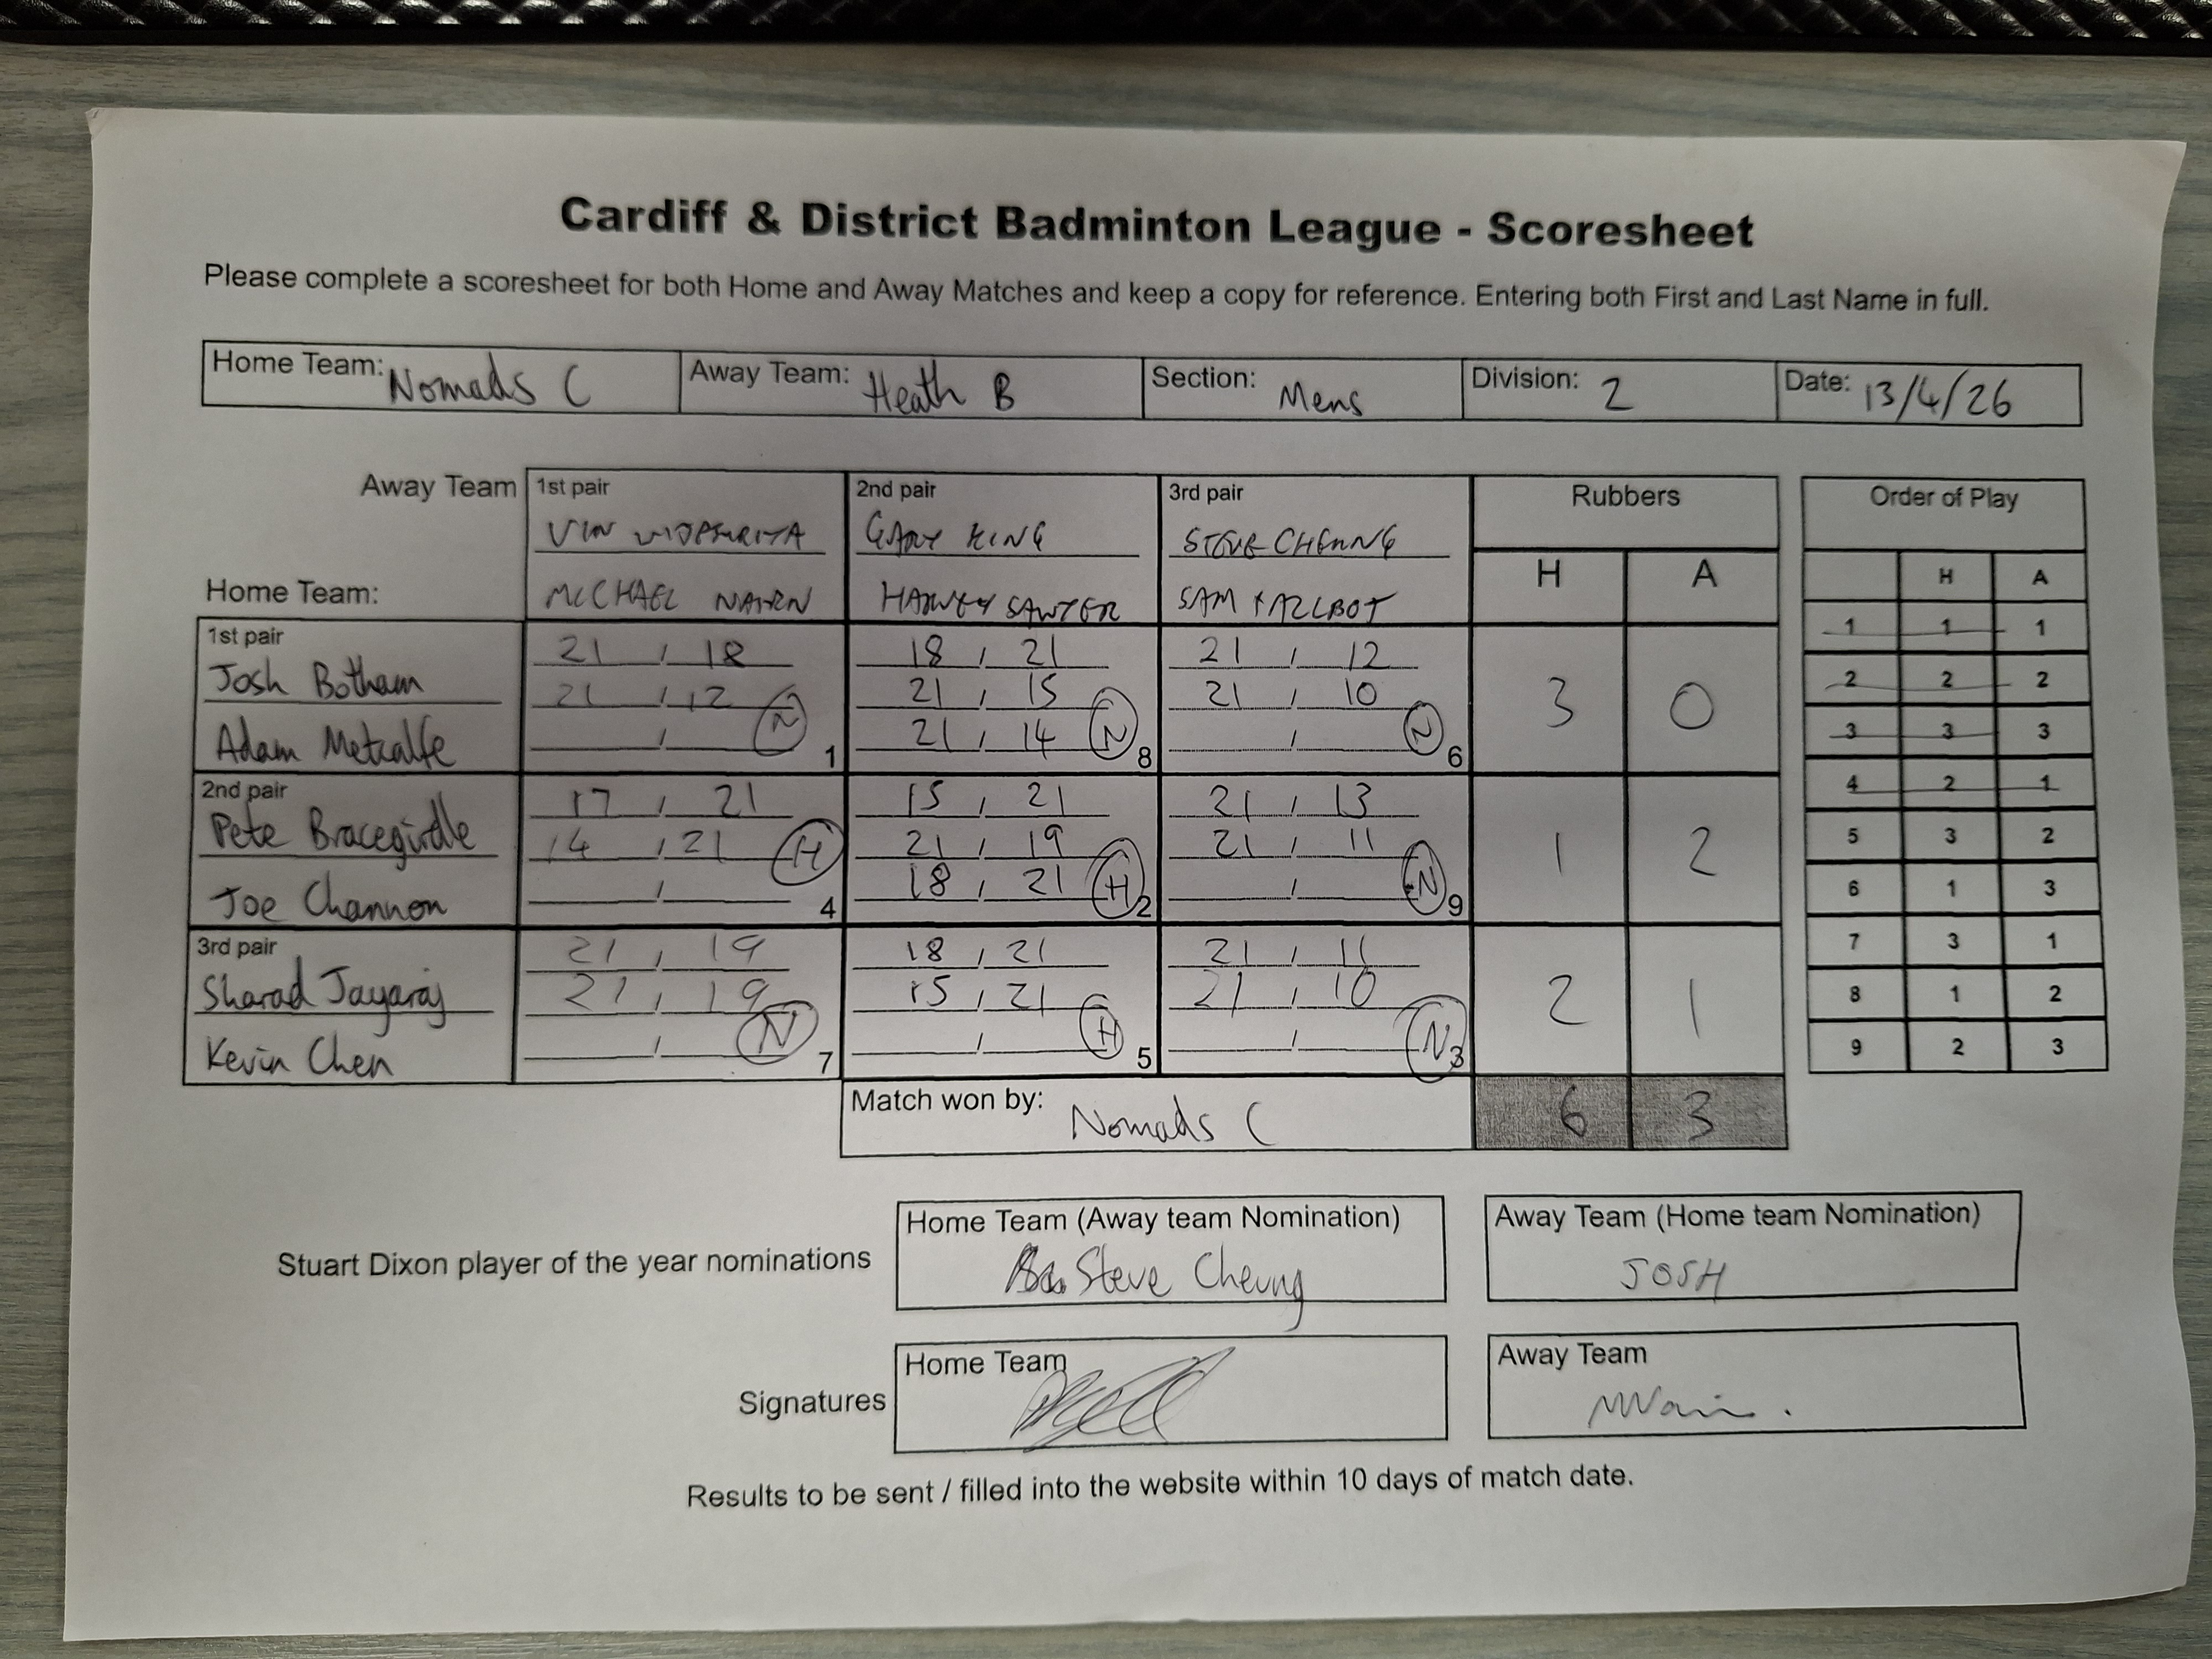 Cardiff & District Badminton League - Scoresheet
Please complete a scoresheet for both Home and Away Matches and keep a copy for reference. Entering both First and Last Name in full.
Home Team: Nomads C Away Team: Heath B Section: Mens Division: 2 Date: 13/4/26
Away Team 1st pair 2nd pair 3rd pair Rubbers Order of Play
VIN GARY KING STEVE CHEUNG
H A H A
Home Team: MICHAEL NAIRN HARVEY SAWYER SAM
1st pair 21 , 18 18 , 21 21 , 12 1 1 1
Josh Botham 21 , 12 N 21 , 15 21 , 10 3 0 2 2 2
Adam Metcalfe , 1 21 , 14 N 8 , N 6 3 3 3
2nd pair 17 , 21 15 , 21 21 , 13 4 2 1
Pete Bracegirdle 14 , 21 H 21 , 19 21 , 11 1 2 5 3 2
Joe Channon , 4 18 , 21 H 2 , N 9 6 1 3
3rd pair 21 , 19 18 , 21 21 , 11 7 3 1
Sharad Jayaraj 21 , 19 15 , 21 21 , 10 2 1 8 1 2
Kevin Chen , N 7 , H 5 , N 3 9 2 3
Match won by: Nomads C 6 3
Stuart Dixon player of the year nominations
Home Team (Away team Nomination) Away Team (Home team Nomination)
Steve Cheung JOSH
Signatures
Home Team Away Team
Results to be sent / filled into the website within 10 days of match date.